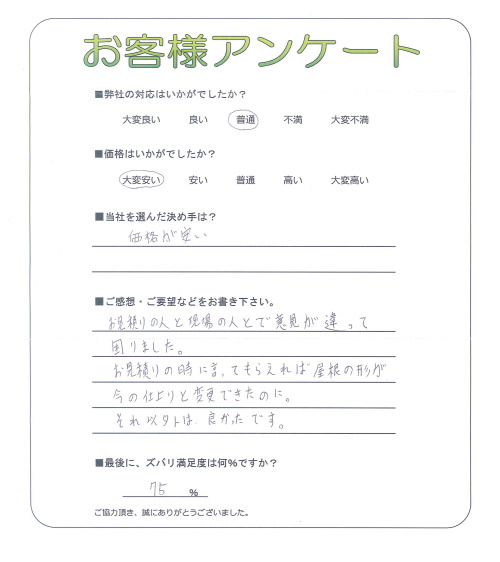 お客様アンケート
■弊社の対応はいかがでしたか？
大変良い 良い 普通 不満 大変不満
■価格はいかがでしたか？
大変安い 安い 普通 高い 大変高い
■当社を選んだ決め手は？
価格が安い
■ご感想・ご要望などをお書き下さい。
お見積りの人と現場の人とで意見が違って
困りました。
お見積りの時に言ってもらえれば屋根の形が
今の仕上りと変更できたのに。
それ以外は、良かったです。
■最後に、ズバリ満足度は何%ですか？
75 %
ご協力頂き、誠にありがとうございました。